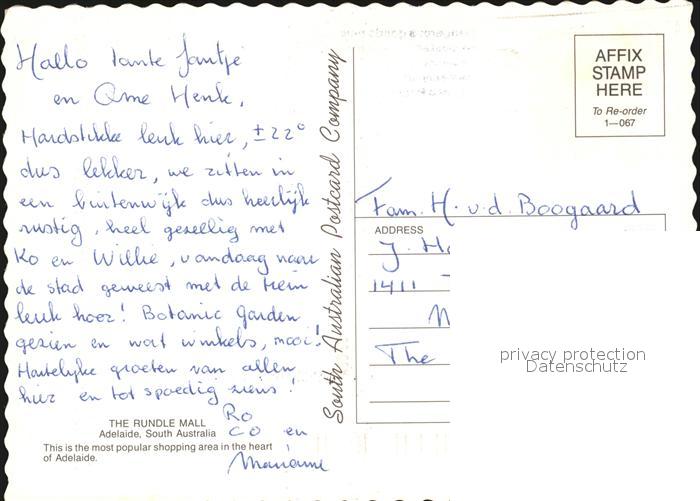 Hallo tante Jantje
en Ome Henk,
Hardstikke leuk hier, ±22°
dus lekker, we zitten in
een buitenwijk dus heerlijk
rustig, heel gezellig met
Ko en Willie, vandaag naar
de stad geweest met de trein
leuk hoor! Botanic Garden
gezien en wat winkels, mooi!
Hartelijke groeten van allen
hier en tot spoedig ziens!
Ro
Co en
Marianne
THE RUNDLE MALL
Adelaide, South Australia
This is the most popular shopping area in the heart
of Adelaide.
South Australian Postcard Company
AFFIX
STAMP
HERE
To Re-order
1—067
Fam. H. v.d. Boogaard
ADDRESS
J. H
1411
The
privacy protection
Datenschutz